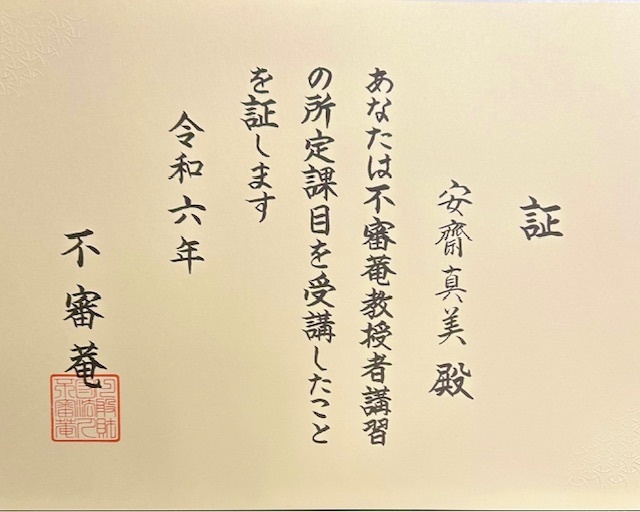 証
安齋真美殿
あなたは不審菴教授者講習
の所定課目を受講したこと
を証します
令和六年
不審菴